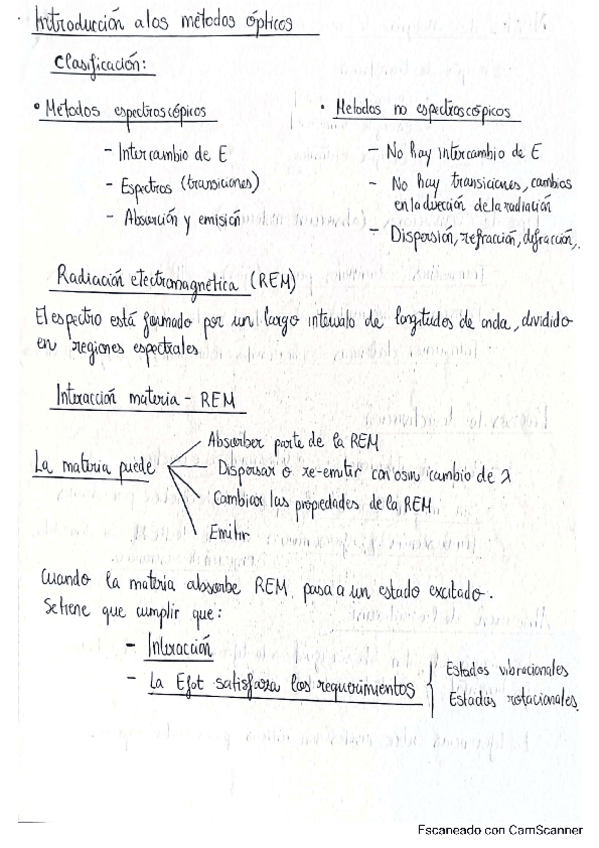 Introducción a los métodos ópticos
Clasificación:
• Métodos espectroscópicos
- Intercambio de E
- Espectros (transiciones)
- Absorción y emisión
• Metodos no espectroscópicos
- No hay intercambio de E
- No hay transiciones, cambios
en la dirección de la radiación
- Dispersión, refracción, difracción,.
Radiación electromagnética (REM)
El espectro está formado por un largo intervalo de longitudes de onda, dividido
en regiones espectrales
Interacción materia - REM
La materia puede
Absorber parte de la REM
Dispersar o re-emitir con o sin cambio de λ
Cambiar las propiedades de la REM
Emitir
Cuando la materia absorbe REM, pasa a un estado excitado.
Se tiene que cumplir que:
- Interacción
- La Efot satisfaza los requerimientos
Estados vibracionales
Estados rotacionales.
Escaneado con CamScanner